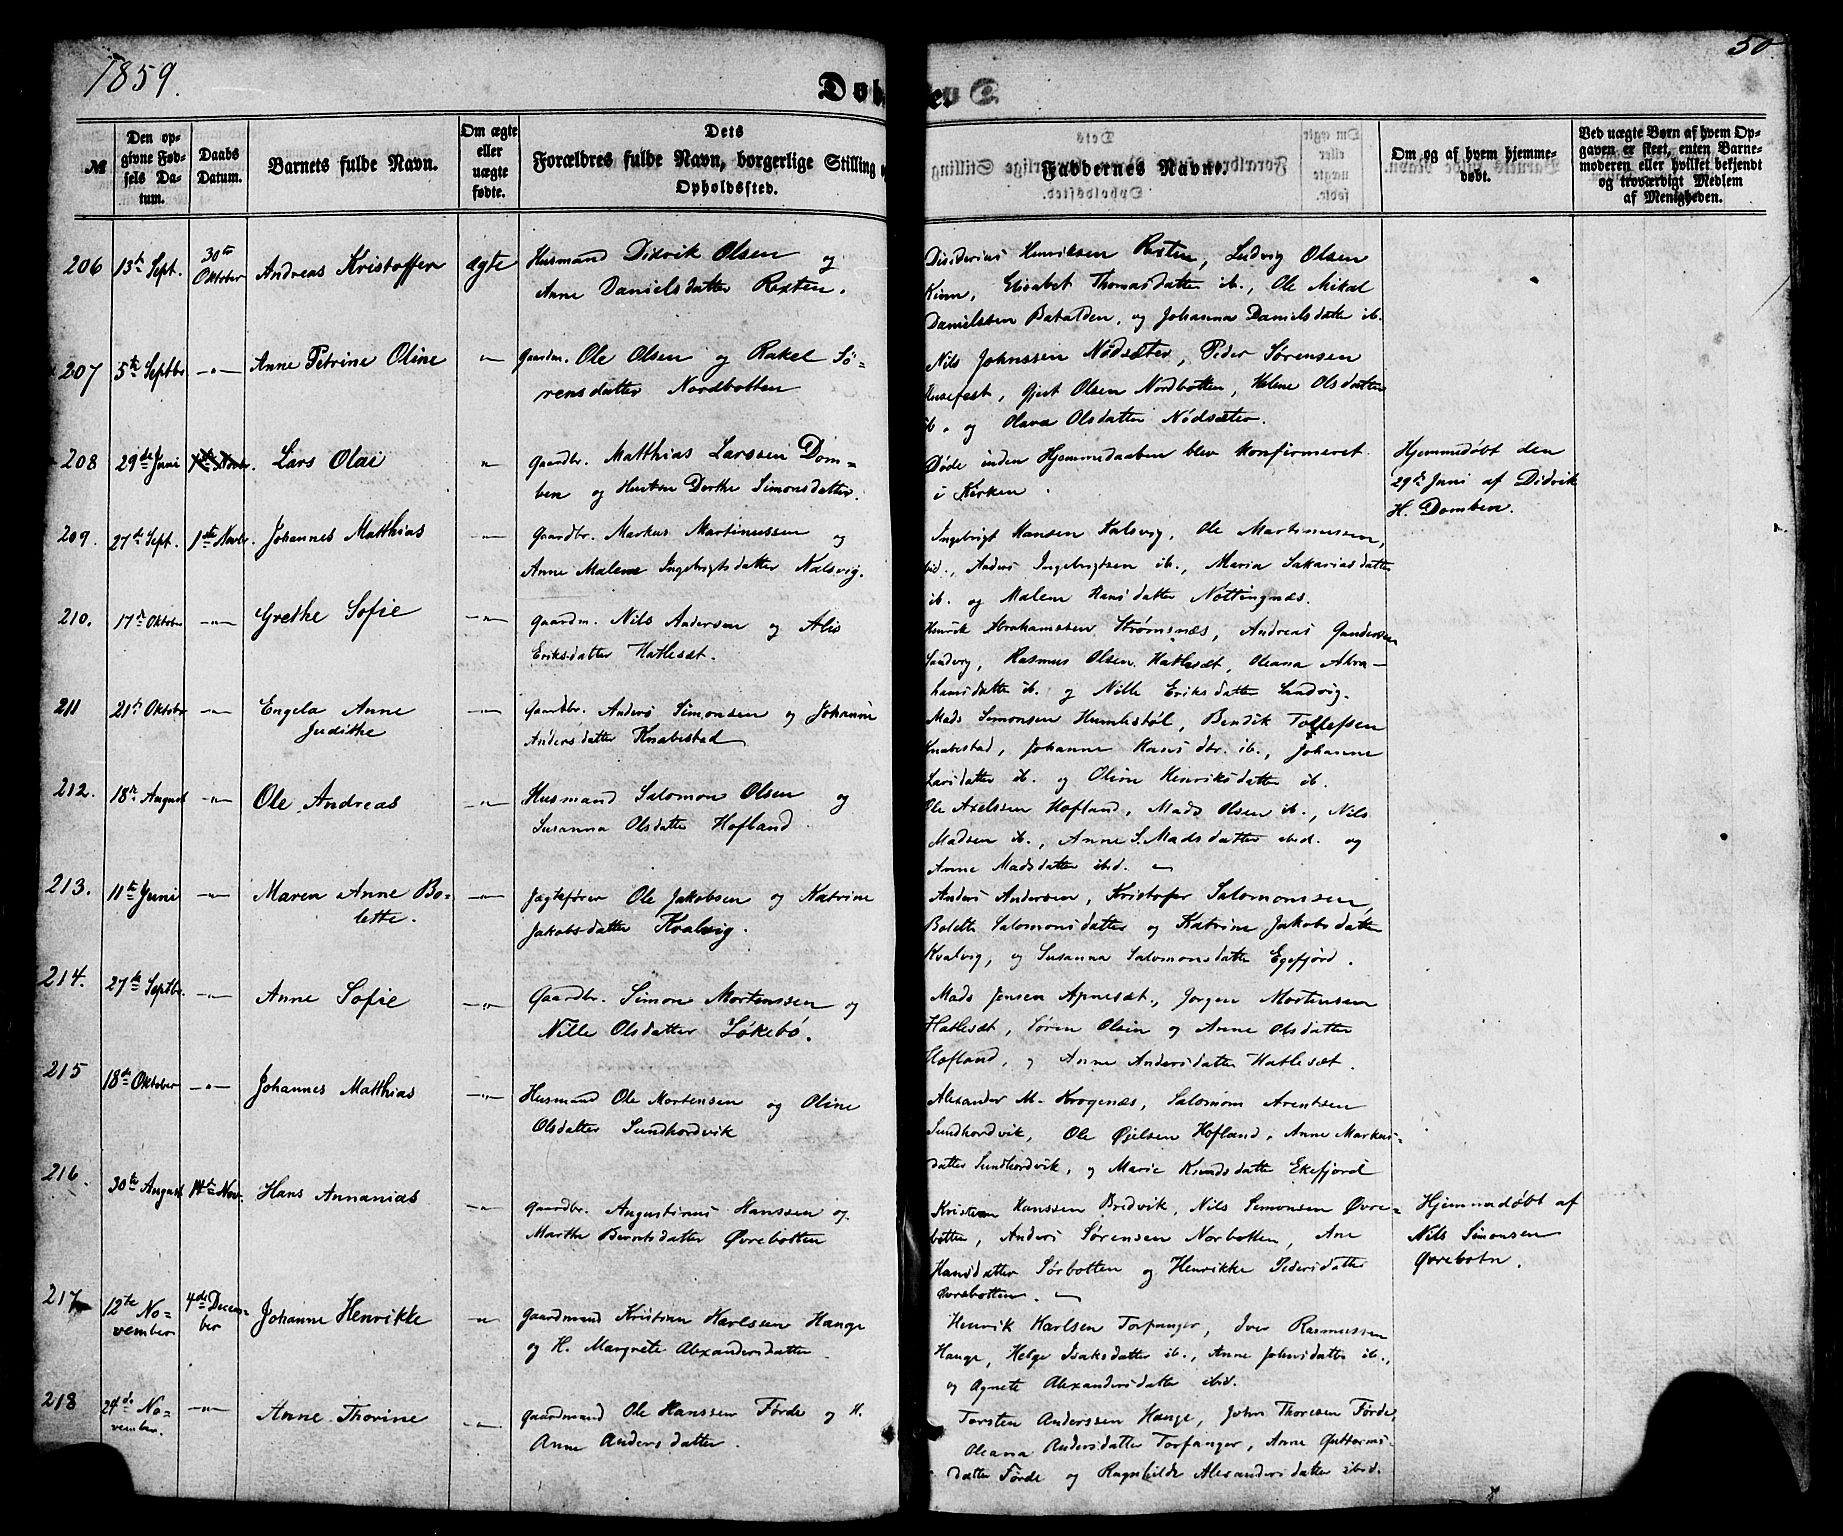 1859.
50.
Døb
№
Den op-
givne Fød-
sels Da-
tum.
Daabs
Datum.
Barnets fulde Navn.
Om ægte
eller
uægte
fødte.
Dets
Forældres fulde Navn, borgerlige Stilling
Opholdssted.
Faddernes Navne.
Om og af hvem hjemme-
døbt.
Ved uægte Børn af hvem Op-
gaven er skeet, enten Barne-
moderen eller hvilket bekjendt
og troværdigt Medlem
af Menigheden.
206
13de Sept.
30te
Oktober
Andreas Kristoffer
ægte
Husmand Didrik Olsen og
Anne Danielsdatter Rexten.
Henriksen Resten, Ludvig Olsen
Kinn, Elisabet Thomasdatter ib., Ole Mikal
Danielsen Batalden, og Johanna Danielsdatter ib.
207
5te Septbr
-"-
Anne Petrine Oline
"
Gaardm. Ole Olsen og Rakel Sö-
rensdatter Nordbotten
Nils Johnssen Nödsæter, Peder Sørensen
Husefest, Gjert Olsen Nordbotten, Helene Olsdatter
ib. og Olava Olsdatter Nödsæter.
208
29de Juni
1ste Novbr.
Lars Olai
"
Gaardbr. Matthias Larssen Dom-
ben og Hustru Dorthe Simonsdatter.
Døde inden Hjemmedaaben blev konfirmeret
i Kirken.
Hjemmedøbt den
29de Juni af Didrik
H. Domben.
209.
27de Sept.
1ste Novbr.
Johannes Matthias
-"-
Gaardbr. Markus Martinussen og
Anne Malene Ingebrigtsdatter Kalsvig.
Ingebrigt Hansen Kalsvig, Ole Martinussen,
ibid., Anders Ingebrigtsen ib., Maria Sakariasdatter
ib. og Malene Hansdatter Nottingnæs.
210.
17de Oktober
-"-
Grethe Sofie
-"-
Gaardm. Nils Andersen og Alis
Eriksdatter Hatleset.
Henrik Abrahamssen Strømsnæs, Andreas Gundersen
Sandvig, Rasmus Olsen Hatlesæt, Oleana Abra-
hamsdatter ib. og Nille Eriksdatter Sandvig.
211
21de Oktobr
-"-
Engela Anne
Judithe
-"-
Gaardbr. Anders Simonsen og Johanne
Andersdatter Knabestad
Mads Simonsen Humlestøl, Bendik Tollefsen
Knabestad, Johanne Hansdtr. ib., Johanne
Larsdatter ib. og Oline Henriksdatter ib.
212.
18de August
-"-
Ole Andreas
-"-
Husmand Salomon Olsen og
Susanna Olsdatter Hofland.
Ole Axelssen Hofland, Mads Olsen ib., Nils
Madsen ib., Anne S. Madsdatter ibid. og
Anne Madsdatter ibid.
213.
11te Juni
-"-
Maren Anne Bo-
lette.
-"-
Jægtefører Ole Jakobsen og Katrine
Jakobsdatter Kvalvig.
Anders Andersen, Kristofer Salomonssen,
Bolette Salomonsdatter og Katrine Jakobsdatter
Kvalvig, og Susanna Salomonsdatter Egefjord.
214.
27de Septbr.
-"-
Anne Sofie
-"-
Gaardbr. Simon Mortenssen og
Nille Olsdatter Løkebö.
Mads Jensen Apnesæt, Jørgen Mortensen
Hatlesæt, Søren Olsen og Anne Olsdatter
Hofland, og Anne Andersdatter Hatlesæt.
215
18de Oktober
-"-
Johannes Matthias
-"-
Husmand Ole Mortensen og Oline
Olsdatter Sundhordvik
Alexander M. Krogenæs, Salomon Arentsen
Sundhordvik, Ole Hofland, Anne Markus-
datter Sundhordvik, og Marie Knudsdatter Ekefjord
216.
30te August
Nov.
Hans Annanias
-"-
Gaardbr. Augustinus Hanssen og
Marthe Berntsdatter Øvrebotten
Kristen Hanssen Bredvik, Nils Simonsen Øvre-
botten, Anders Sørensen Norbotten, Ane
Hansdatter Sørbotten og Henrikke Pedersdatter
Øvrebotten.
Hjemmedøbt af
Nils Simonsen
Øvrebotn.
217
12te No-
vember
4de Decem-
ber
Johanne Henrikke
"
Gaardmand Kristian Karlsen Hauge
og H. Margrete Alexandersdatter
Henrik Karlsen Torfanger, Iver Rasmussen
Hauge, Helge Isaksdatter ib., Anne Johnsdatter ib.,
og Agnete Alexandersdatter ibid.
218
24de No-
vember.
-"-
Anne Thorine
-"-
Gaardmand Ole Hanssen Førde og H.
Anne Andersdatter.
Torsten Anderssen Hauge, John Thoresen Førde,
Oleana Andersdatter Torfanger, Anne Guttorms-
datter Førde og Ragnhilde Alexandersdatter ibid.